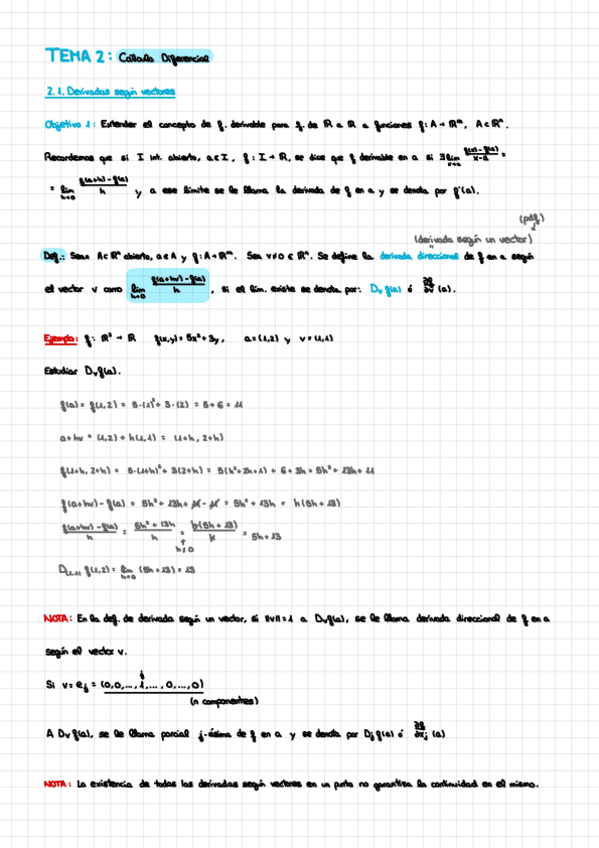 TEMA 2: Cálculo Diferencial
2.1. Derivadas según vectores
Objetivo 1: Extender el concepto de f. derivable para f. de ℝ a ℝ a funciones f: A → ℝᵐ, A ⊂ ℝⁿ.
Recordemos que si I int. abierto, a ∈ I, f: I → ℝ, se dice que f derivable en a si ∃ lim x→a (f(x) - f(a))/(x-a) =
= lim h→0 (f(a+h) - f(a))/h y a ese límite se le llama la derivada de f en a y se denota por f'(a).
(pdf)
(derivada según un vector)
Def.: Sean A ⊂ ℝⁿ abierto, a ∈ A y f: A → ℝᵐ. Sea v ≠ 0 ∈ ℝⁿ. Se define la derivada direccional de f en a según
el vector v como lim h→0 (f(a+hv) - f(a))/h, si el lim. existe se denota por: Dᵥ f(a) ó ∂f/∂v (a).
Ejemplo: f: ℝ² → ℝ f(x,y) = 5x² + 3y, a = (1,2) y v = (1,1)
Estudiar Dᵥf(a).
f(a) = f(1,2) = 5·(1)² + 3·(2) = 5 + 6 = 11
a + hv = (1,2) + h(1,1) = (1+h, 2+h)
f(1+h, 2+h) = 5·(1+h)² + 3(2+h) = 5(h²+2h+1) + 6 + 3h = 5h² + 13h + 11
f(a+hv) - f(a) = 5h² + 13h + 11 - 11 = 5h² + 13h = h(5h + 13)
(f(a+hv) - f(a))/h = (5h² + 13h)/h = h(5h + 13)/h = 5h + 13
h ≠ 0
D₍₁,₁₎ f(1,2) = lim h→0 (5h + 13) = 13
NOTA: En la def. de derivada según un vector, si ‖v‖ = 1 a Dᵥf(a), se le llama derivada direccional de f en a
según el vector v.
j
Si v = eⱼ = (0,0,...,1,...,0,...,0)
(n componentes)
A Dᵥ f(a), se le llama parcial j-ésima de f en a y se denota por Dⱼ f(a) ó ∂f/∂xⱼ (a)
NOTA: La existencia de todas las derivadas según vectores en un punto no garantiza la continuidad en el mismo.